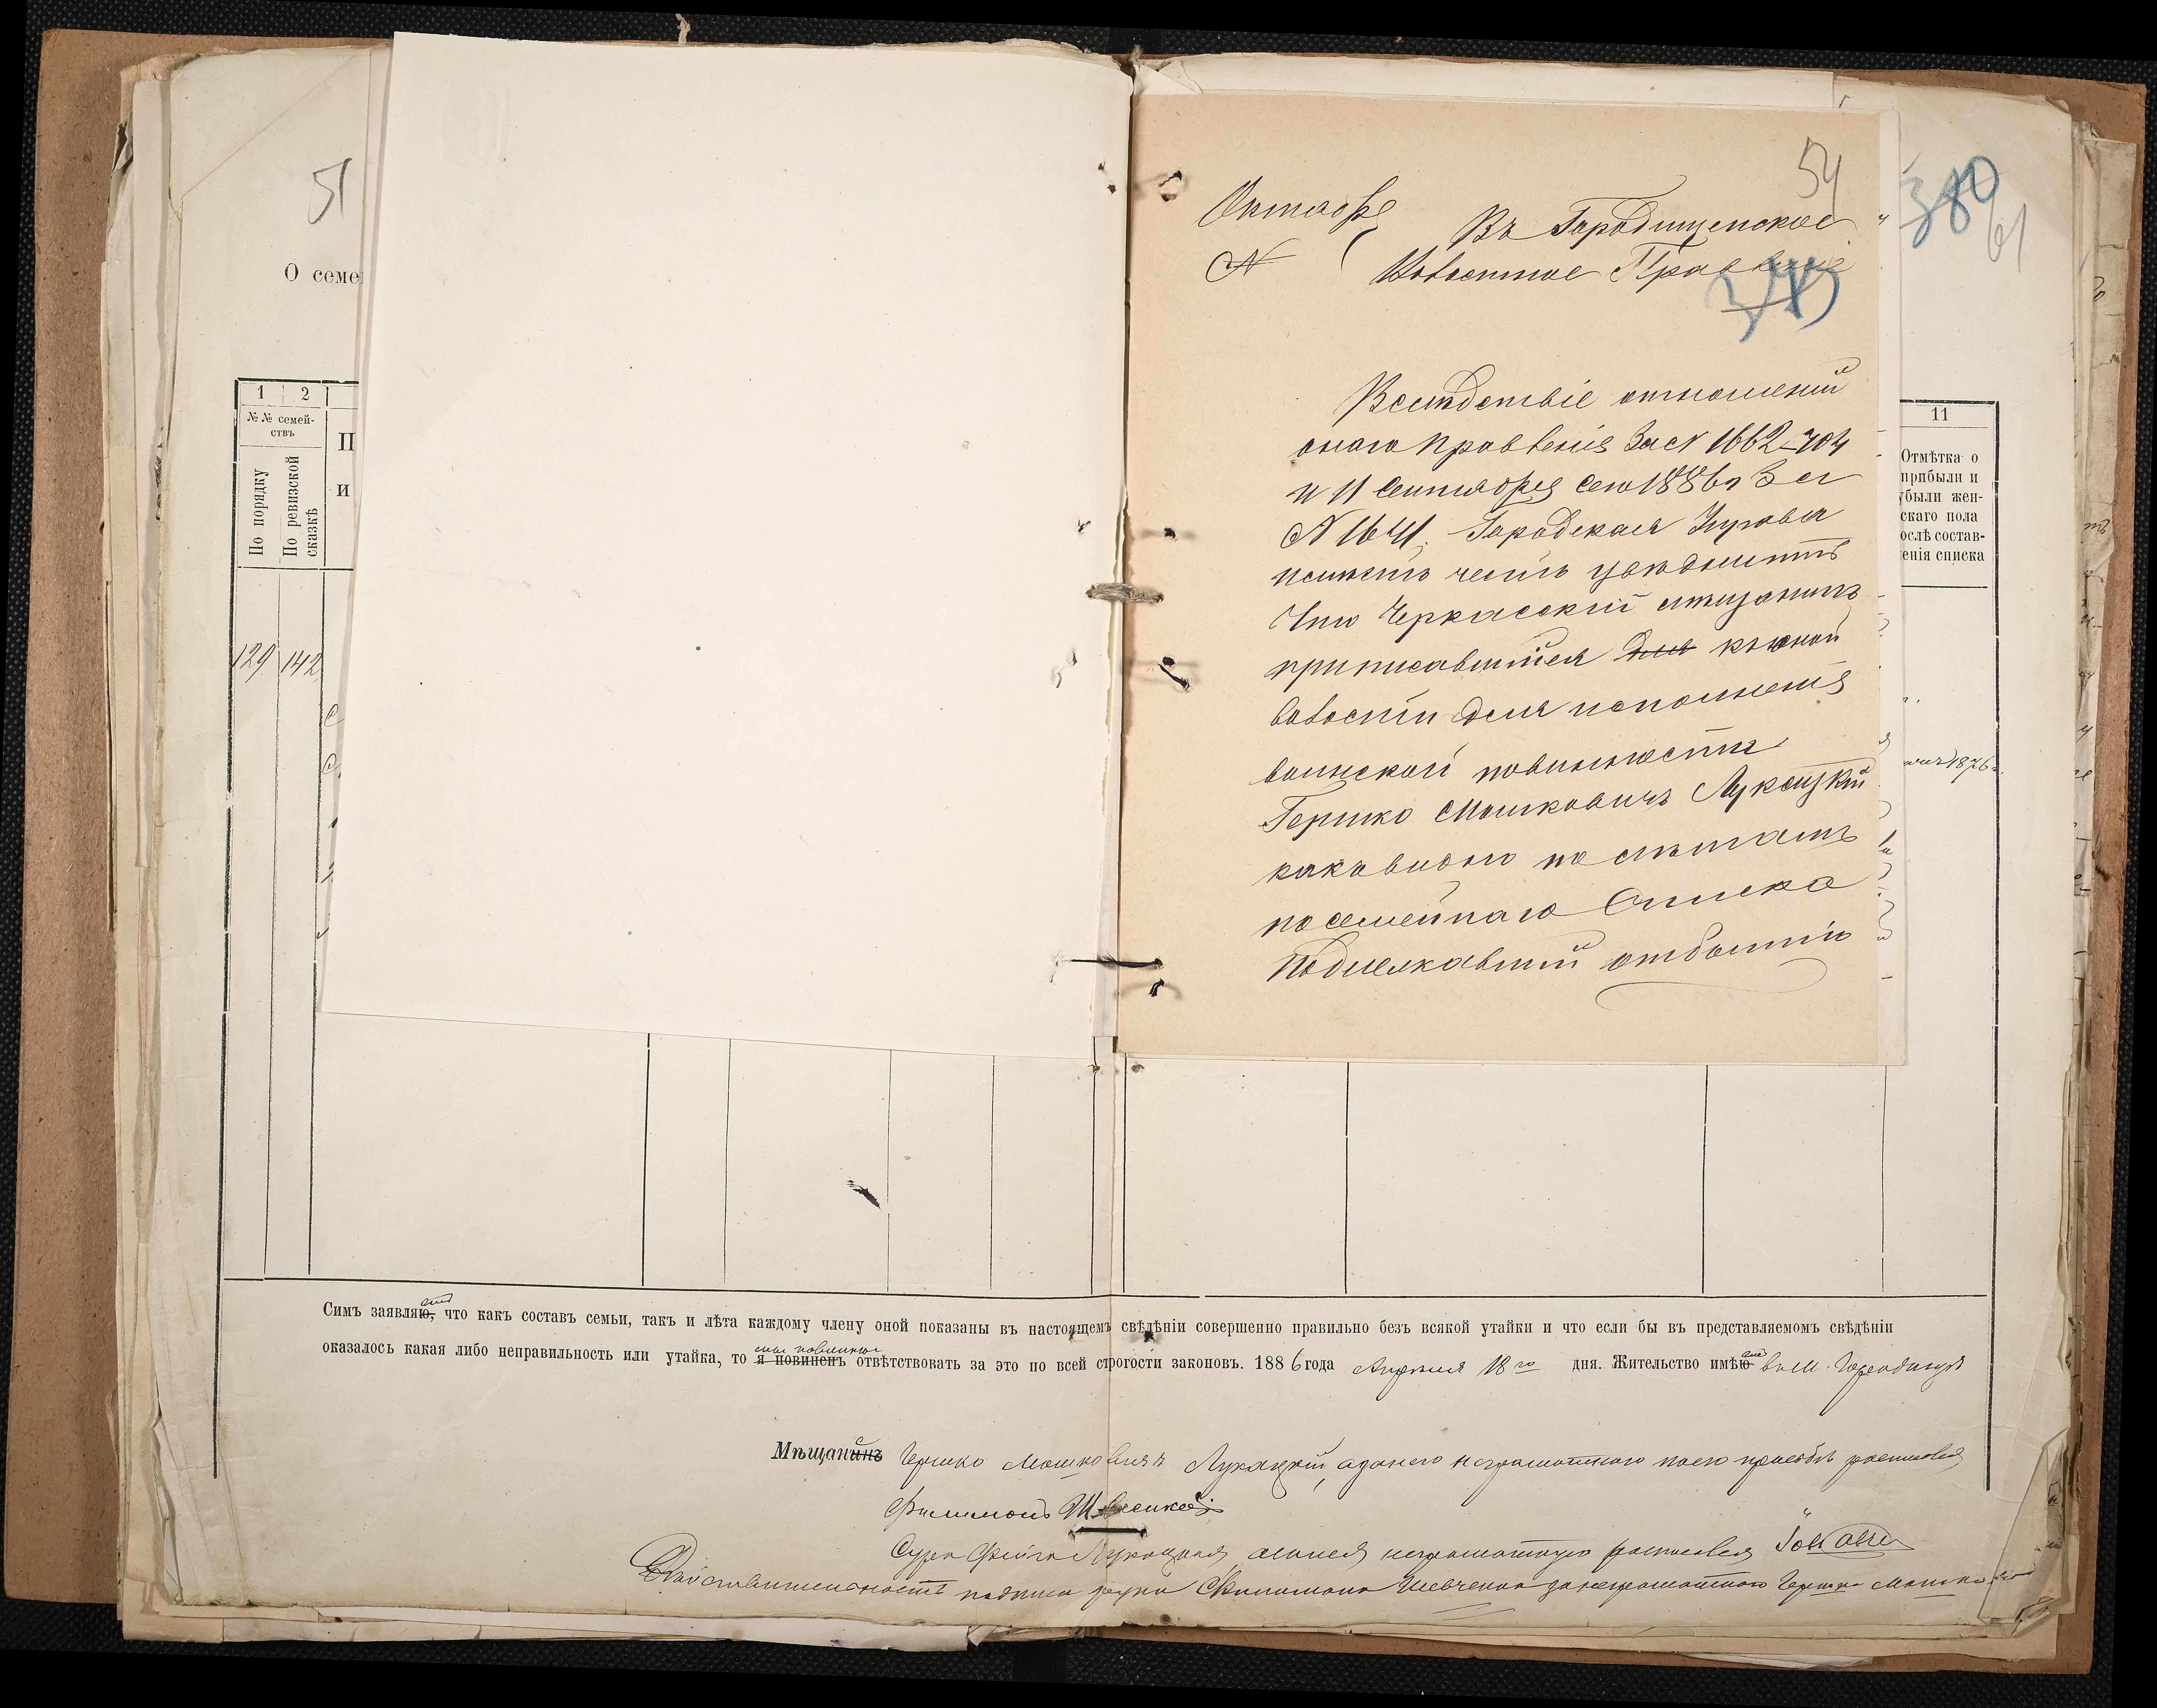 51
О семе
1 2
№ № семей-
ствъ
По порядку
По ревизской
сказкѣ
П
и
129 142
54
Октября
N
Въ Городищенское
Волостное Правленіе
373
Вслѣдствіе отношеній
онаго правленія за N 1662-704
и 11 Сентября сего 1886 г За
N 1641. Городская Управа
имѣетъ честь увѣдомить
что Черкасский мѣщанинъ
приписавшійся для къ оной
волости для исполненія
воинской повинности
Гершко Мошковичъ Лукацкій
какъ видно по лѣтамъ
посемейнаго Списка
Подлежавшій отбытію
380
61
11
Отмѣтка о
прибыли и
убыли жен-
скаго пола
послѣ состав-
ленія списка
1876
Симъ заявляю, что какъ составъ семьи, такъ и лѣта каждому члену оной показаны въ настоящемъ свѣдѣніи совершенно правильно безъ всякой утайки и что если бы въ представляемомъ свѣдѣніи
мы повинны
оказалось какая либо неправильность или утайка, то я повиненъ отвѣтствовать за это по всей строгости законовъ. 1886 года Апрѣля 18 го дня. Жительство имѣю въ м. Городищѣ
Мѣщанинъ Гершко Мошковичъ Лукацкій, а за него неграмотнаго по его просьбѣ росписался
Филимонъ Шевченко
Сура Фейга Лукацкая, а за нея неграмотную росписался
Дѣйствительность подписи руки Филимона Шевченка за неграмотного Гершка Мошко